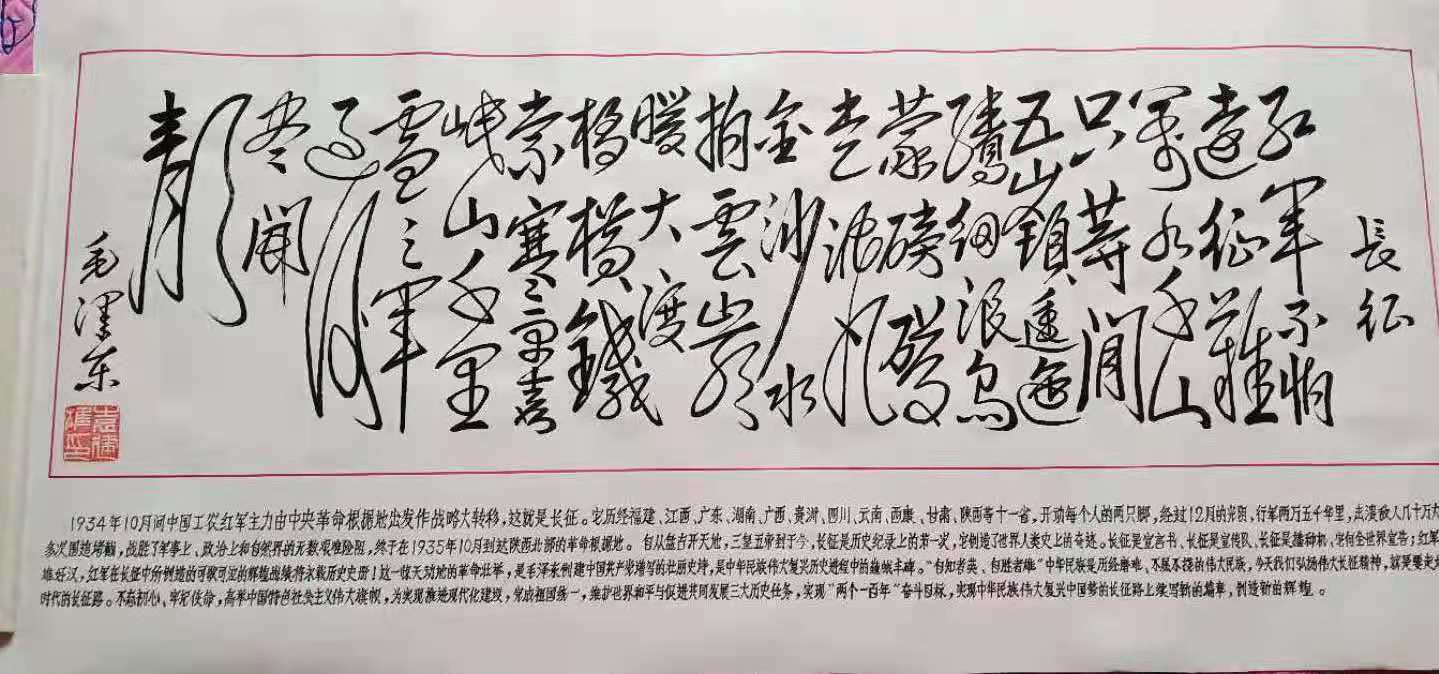 長征
紅軍不怕
遠征難
萬水千山
只等閒
五嶺逶迤
騰細浪烏
蒙磅礴
走泥丸
金沙水
拍雲崖
暖大渡
橋橫鐵
索寒更喜
岷山千里
雪三軍
過後
盡開
顏
毛澤东
1934年10月间中国工农红军主力由中央革命根据地出发作战略大转移，这就是长征。它历经福建、江西、广东、湖南、广西、贵州、四川、云南、西康、甘肃、陕西等十一省，开动每个人的两只脚，经过12月的光阴，行军两万五千华里，走漫敌人几十万大
多次围追堵截，战胜了军事上、政治上和自然界的无数艰难险阻，终于在1935年10月到达陕西北部的革命根据地。自从盘古开天地，三皇五帝到于今，长征是历史纪录上的第一次，它创造了世界人类史上的奇迹。长征是宣言书、长征是宣传队、长征是播种机，它向全世界宣告：红军
雄好汉，红军在长征中所创造的可歌可泣的辉煌战绩将永载历史史册！这一惊天动地的革命壮举，是毛泽东创建中国共产党谱写的壮丽史诗，是中华民族伟大复兴历史进程中的巍峨丰碑。"自知者英、自胜者雄"中华民族是历经磨难、不屈不挠的伟大民族，今天我们弘扬伟大长征精神，就是要走好
时代的长征路。不忘初心、牢记使命，高举中国特色社会主义伟大旗帜，为实现推进现代化建设，完成祖国统一，维护世界和平与促进共同发展三大历史任务，实现"两个一百年"奋斗目标，实现中华民族伟大复兴中国梦的长征路上续写新的篇章，创造新的辉煌。